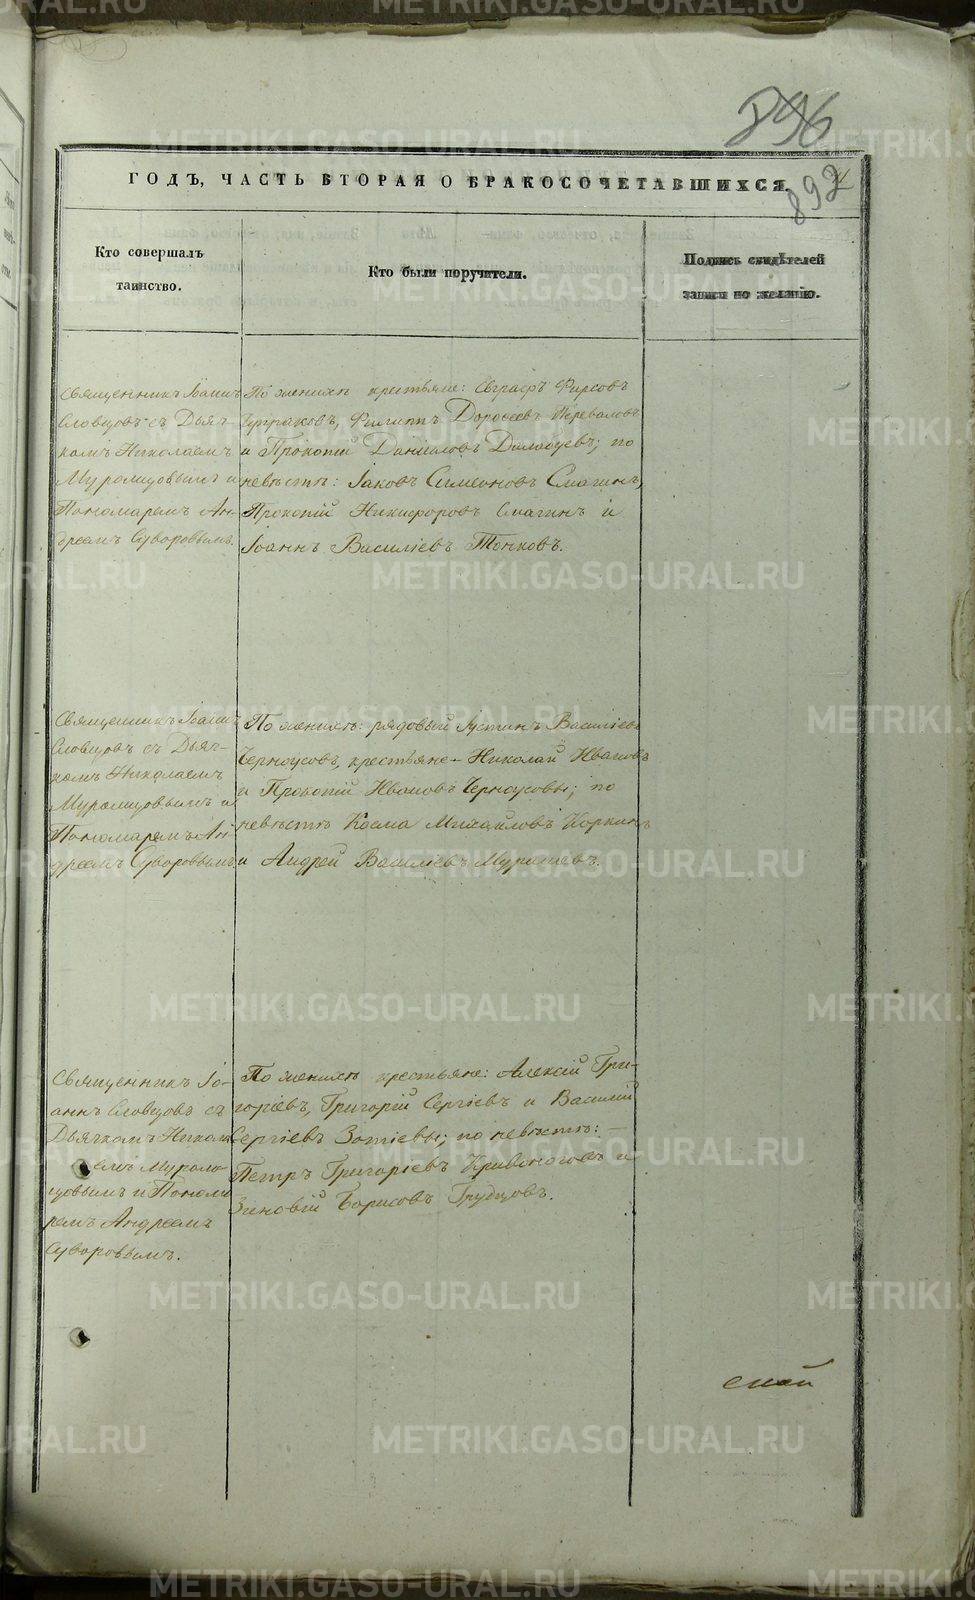 896
892
ГОДЪ, ЧАСТЬ ВТОРАЯ О БРАКОСОЧЕТАВШИХСЯ.
Кто совершалъ
таинство.
Кто были поручители.
Подпись свидѣтелей
записи по желанію.
Священникъ Іоаннъ
Словцовъ съ Дьяч-
комъ Николаемъ
Муромцовымъ и
Пономаремъ Ан-
дреемъ Суворовымъ.
По женихѣ крестьяне: Евграфъ Фирсовъ
Филиппъ Дороѳеевъ Переваловъ
и Прокопій Даниловъ; по
невѣстѣ: Іаковъ Симеоновъ Смагинъ,
Прокопій Никифоровъ Смагинъ и
Іоаннъ Василіевъ Тонковъ.
Священникъ Іоаннъ
Словцовъ съ Дьяч-
комъ Николаемъ
Муромцовымъ и
Пономаремъ Ан-
дреемъ Суворовымъ
По женихѣ: рядовый Іустинъ Василіевъ
Черноусовъ, крестьяне - Николай Ивановъ
и Прокопій Ивановъ Черноусовы; по
невѣстѣ Косма Михайловъ Коркинъ
и Андрей Василіевъ
Священникъ Іо-
аннъ Словцовъ съ
Дьячкомъ Никола-
емъ Муром-
цовымъ и Понома
ремъ Андреемъ
Суворовымъ.
По женихѣ крестьяне: Алексій Гри-
горіевъ, Григорій Сергіевъ и Василій
Сергіевъ Зотіевы; по невѣстѣ: -
Петръ Григоріевъ Кривоноговъ и
Зиновій Борисовъ Грудцовъ.
ской
METRIKI.GASO-URAL.RU